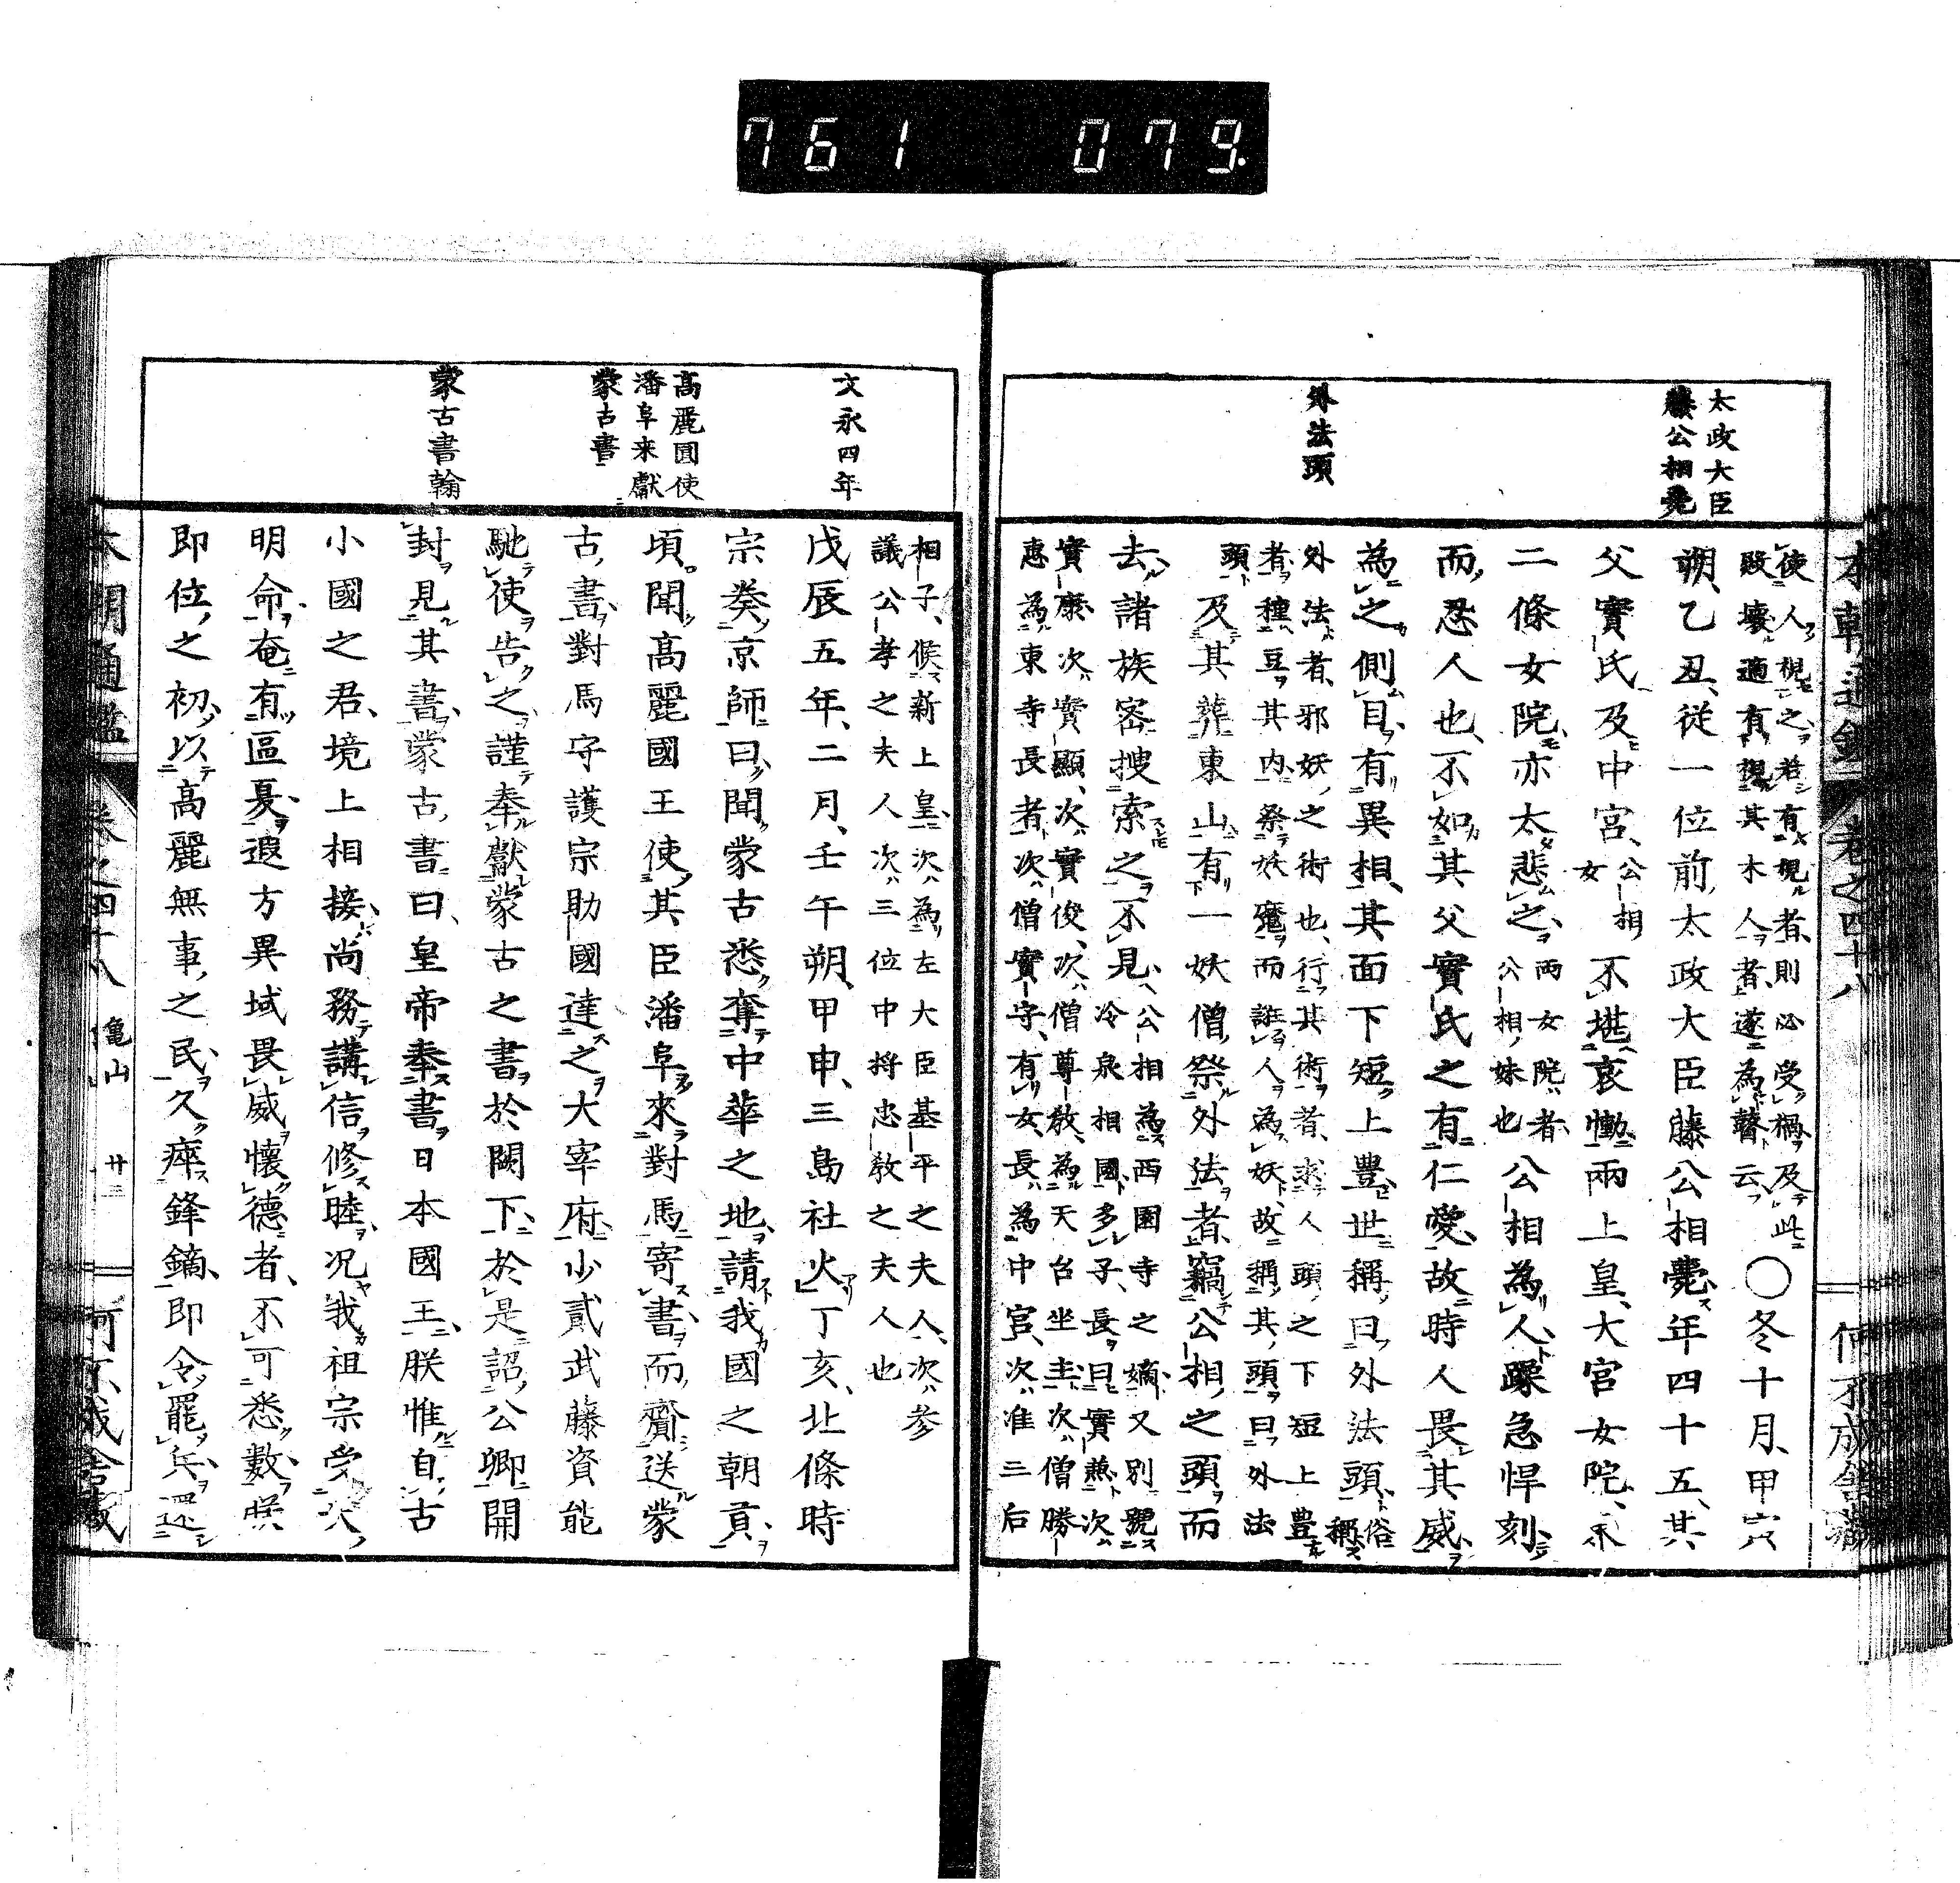 761 079.
太政大臣
藤公相薨
外法頭
本朝通鑑 卷之四十八
使人視之若有視者則必受禍及此
毀壞適有視其木人者遂為瞽云
○冬十月甲六
朔乙丑從一位前太政大臣藤公相薨年四十五其
父實氏及中宮
公相
女
不堪哀慟兩上皇大宮女院
二條女院亦太悲之
兩女院者
公相妹也
公相為人躁急悍刻
而忍人也不如其父實氏之有仁愛故時人畏其威
為之側目有異相其面下短上豊世稱曰外法頭
俗
稱
外法者邪妖之術也行其術者求人頭之下短上豊
者種豆其內祭妖魔而誑人為妖故稱其頭曰外法
頭
及其葬東山有一妖僧祭外法者竊公相之頭而
去諸族密搜索之不見
公相為西園寺之嫡又別號
冷泉相國多子長曰實兼次
實康次實顯次實俊次僧尊教為天台坐主次僧勝
惠為東寺長者次僧實守有女長為中宮次准三后
文永四年
高麗國使
潘阜来獻
蒙古書
蒙古書翰
相子候新上皇次為左大臣基平之夫人次参
議公孝之夫人次三位中將忠敎之夫人也
戊辰五年二月壬午朔甲申三島社火丁亥北條時
宗奏京師曰聞蒙古悉奪中華之地請我國之朝貢
頃聞高麗國王使其臣潘阜來對馬寄書而齎送蒙
古書對馬守護宗助國達之大宰府少貳武藤資能
馳使告之謹奉獻蒙古之書於闕下於是詔公卿開
封見其書蒙古書曰皇帝奉書日本國王朕惟自古
小國之君境上相接尚務講信修睦况我祖宗受天
明命奄有區夏遐方異域畏威懷德者不可悉數朕
即位之初以高麗無事之民久瘁鋒鏑即令罷兵還
本朝通鑑 卷之四十八 龜山 廿三